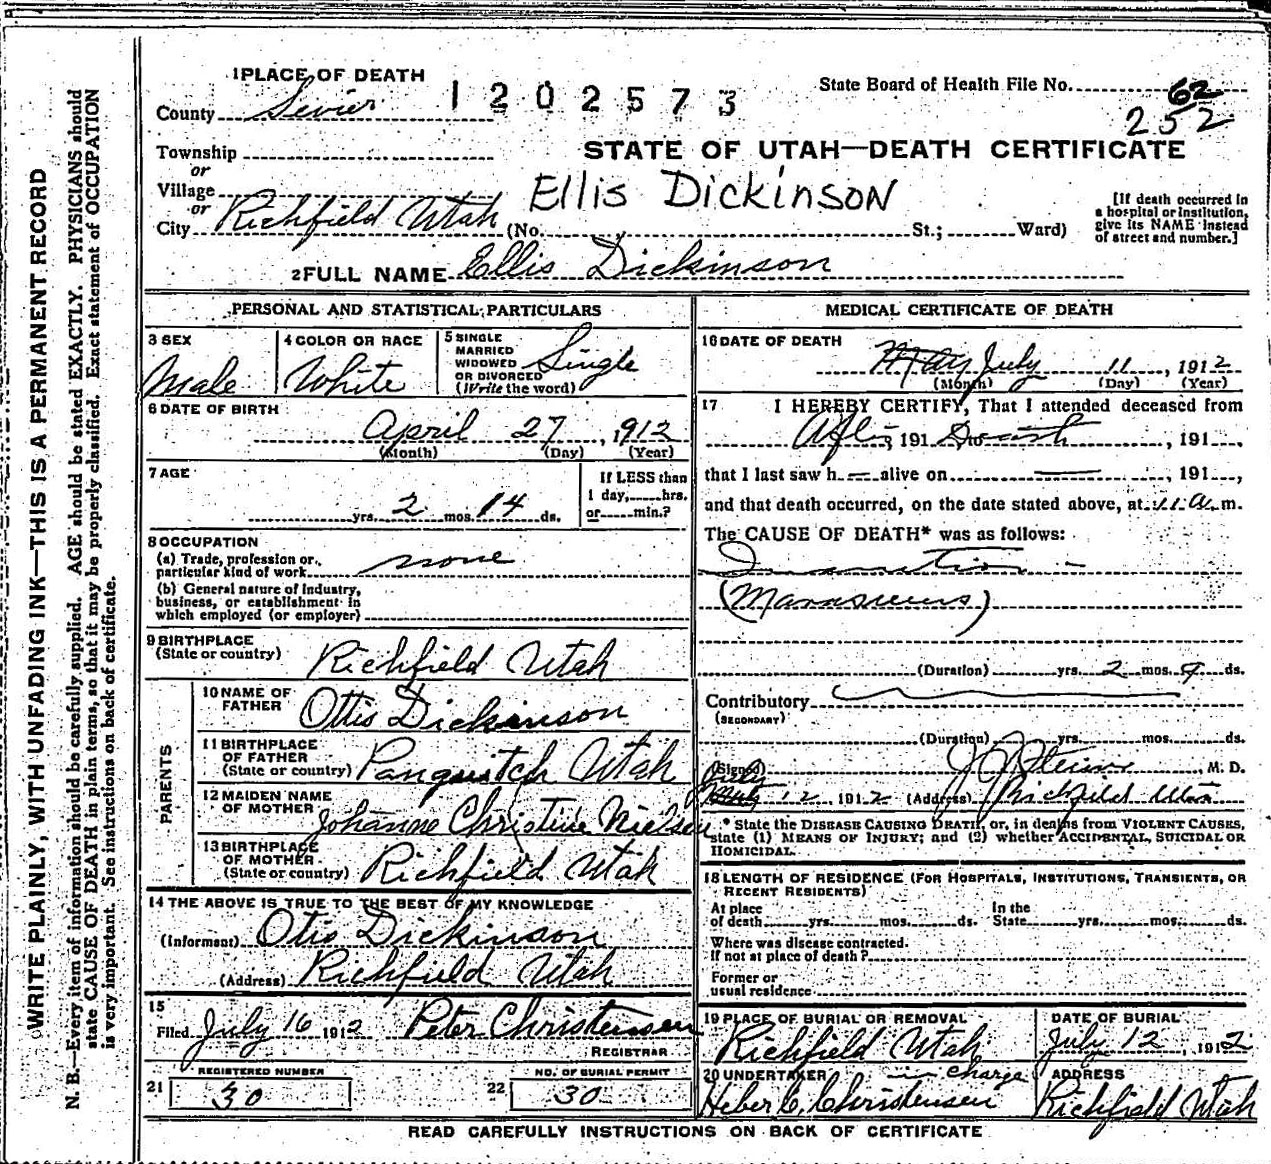 WRITE PLAINLY, WITH UNFADING INK—THIS IS A PERMANENT RECORD
N. B.—Every item of information should be carefully supplied. AGE should be stated EXACTLY. PHYSICIANS should
state CAUSE OF DEATH in plain terms, so that it may be properly classified. Exact statement of OCCUPATION
is very important. See instructions on back of certificate.
1 PLACE OF DEATH
County Sevier
1202573
State Board of Health File No. 62
252
Township
or
Village
or
City Richfield Utah (No. St.; Ward)
STATE OF UTAH—DEATH CERTIFICATE
Ellis Dickinson
[If death occurred in
a hospital or institution,
give its NAME instead
of street and number.]
2 FULL NAME Ellis Dickinson
PERSONAL AND STATISTICAL PARTICULARS
3 SEX
Male
4 COLOR OR RACE
White
5 SINGLE
MARRIED
WIDOWED
OR DIVORCED
(Write the word)
Single
6 DATE OF BIRTH
April 27, 1912
(Month) (Day) (Year)
7 AGE
yrs. 2 mos. 14 ds.
If LESS than
1 day, hrs.
or min.?
8 OCCUPATION
(a) Trade, profession or
particular kind of work none
(b) General nature of Industry,
business, or establishment in
which employed (or employer)
9 BIRTHPLACE
(State or country) Richfield Utah
PARENTS
10 NAME OF
FATHER Ottis Dickinson
11 BIRTHPLACE
OF FATHER
(State or country) Panguitch Utah
12 MAIDEN NAME
OF MOTHER Johanne Christine Nielsen
13 BIRTHPLACE
OF MOTHER
(State or country) Richfield Utah
14 THE ABOVE IS TRUE TO THE BEST OF MY KNOWLEDGE
(Informant) Otis Dickinson
(Address) Richfield Utah
15
Filed July 16 1912 Peter Christensen
REGISTRAR
REGISTERED NUMBER
21 30
NO. OF BURIAL PERMIT
22 30
MEDICAL CERTIFICATE OF DEATH
16 DATE OF DEATH
May July 11, 1912
(Month) (Day) (Year)
17 I HEREBY CERTIFY, That I attended deceased from
After, 191 Death, 191
that I last saw h alive on , 191 ,
and that death occurred, on the date stated above, at 11 a. m.
The CAUSE OF DEATH* was as follows:
Inanition
(Marasmus)
(Duration) yrs. 2 mos. 9 ds.
Contributory
(SECONDARY)
(Duration) yrs. mos. ds.
(Signed) J J Steiner, M. D.
July 12 1912 (Address) Richfield Utah
* State the DISEASE CAUSING DEATH, or, in deaths from VIOLENT CAUSES,
state (1) MEANS OF INJURY; and (2) whether ACCIDENTAL, SUICIDAL OR
HOMICIDAL.
18 LENGTH OF RESIDENCE (FOR HOSPITALS, INSTITUTIONS, TRANSIENTS, OR
RECENT RESIDENTS)
At place
of death yrs. mos. ds.
In the
State yrs. mos. ds.
Where was disease contracted.
If not at place of death?
Former or
usual residence
19 PLACE OF BURIAL OR REMOVAL
Richfield Utah
DATE OF BURIAL
July 12, 1912
20 UNDERTAKER in charge
Heber C. Christensen
ADDRESS
Richfield Utah
READ CAREFULLY INSTRUCTIONS ON BACK OF CERTIFICATE